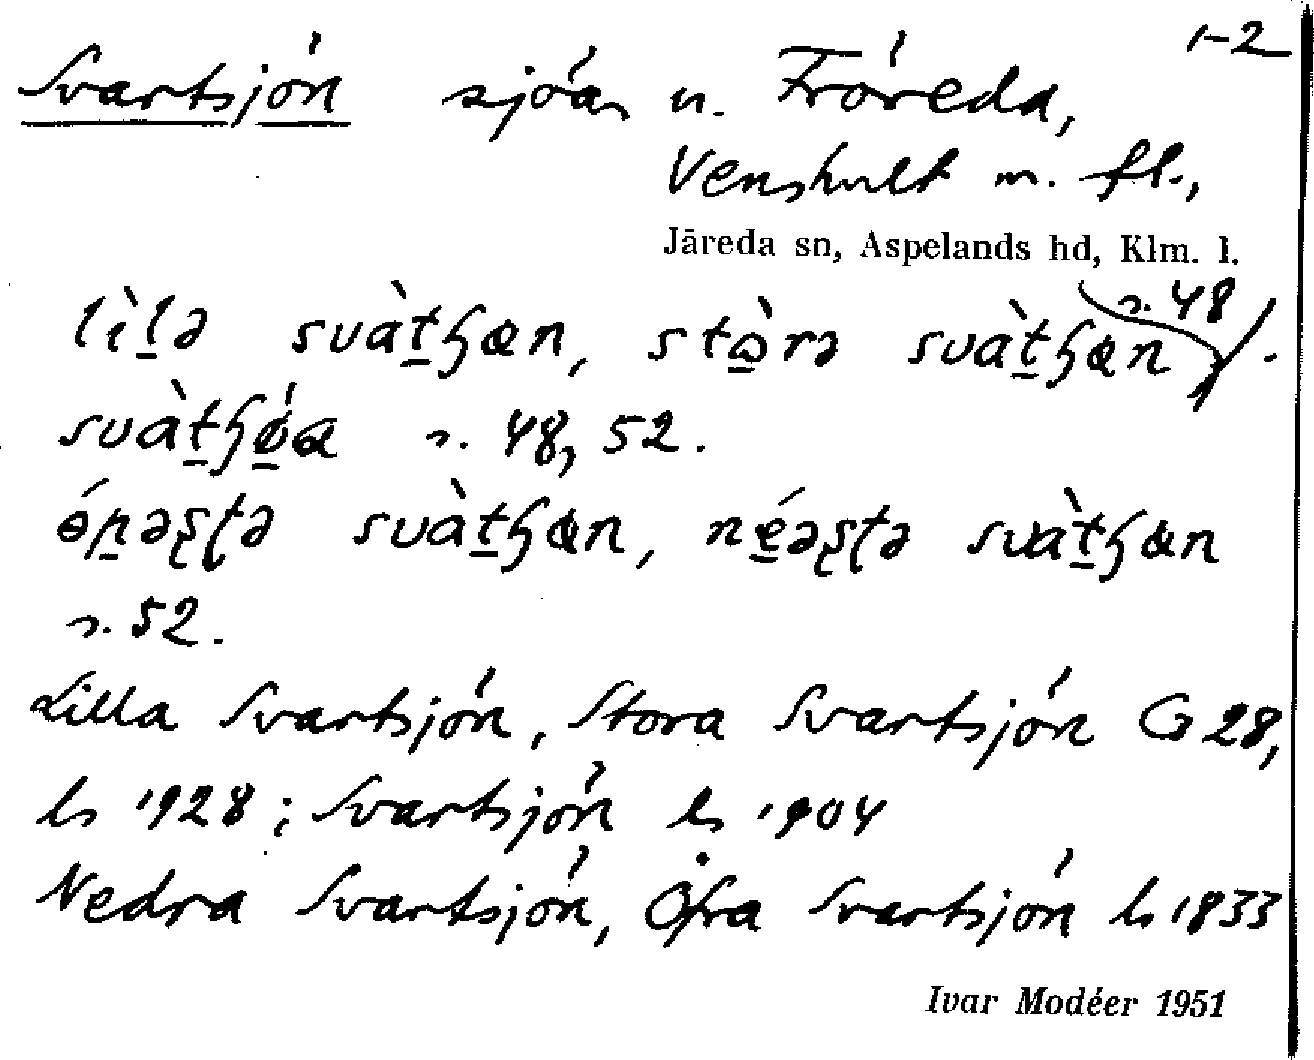 1-2
Svartsjön sjöar n. Fröreda,
Venshult m. fl.,
Järeda sn, Aspelands hd, Klm. l.
lìlə svàtɧøn, stòrə svàtɧøn s. 48.
svàtɧǿa s. 48, 52.
ǿnəʂʈə svàtɧøn, néəʂʈə svàtɧøn
s. 52.
Lilla Svartsjön, Stora Svartsjön G 28,
ls 1928; Svartsjön ls 1904
Nedra Svartsjön, Öfra Svartsjön ls 1833
Ivar Modéer 1951